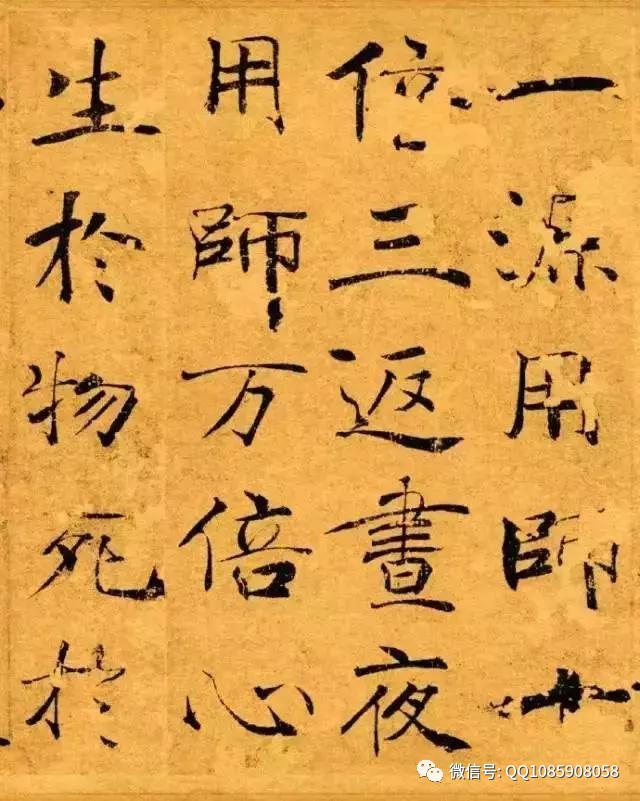 一源用師十
倍三返晝夜
用師万倍心
生於物死於
微信号: QQ1085908058